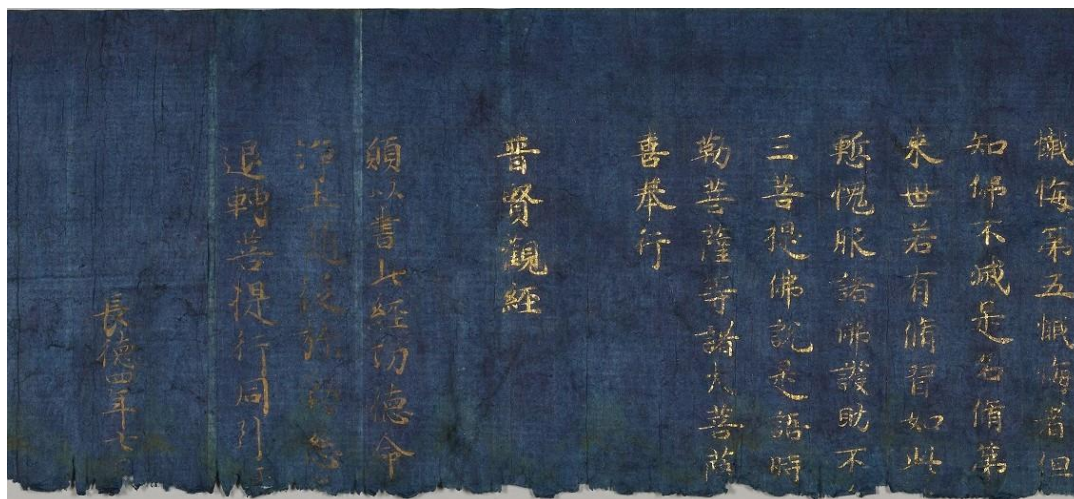 懺悔第五懺悔者但
知佛不滅是名脩第
来世若有脩習如此
慙愧服諸佛護助不
三菩提佛說是語時
勒菩薩等諸大菩薩
喜奉行
普賢觀經
願以書此經功德令
淨土
退轉菩提行同引
長德四年七